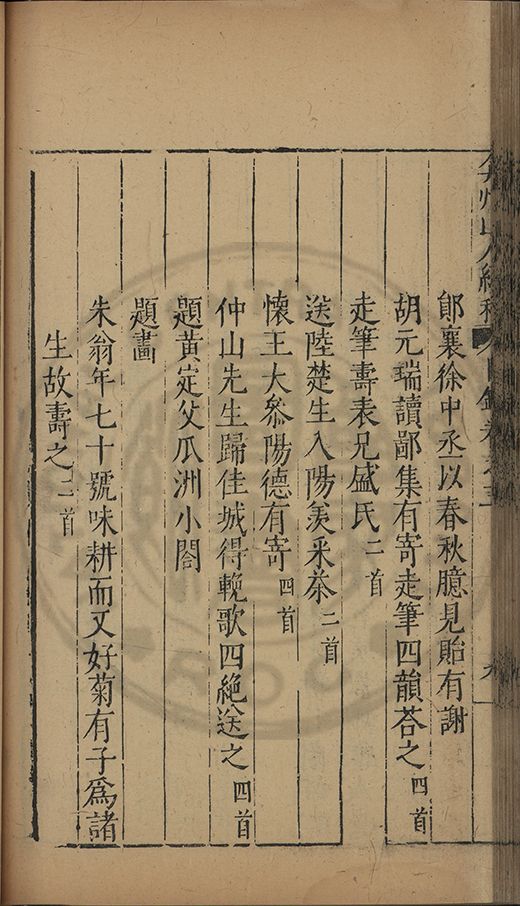 弇州山人續稿 目錄卷之
九
鄖襄徐中丞以春秋臆見貽有謝
胡元瑞讀鄙集有寄走筆四韻荅之四首
走筆壽表兄盛氏二首
送陸楚生入陽羨采茶二首
懷王大叅陽德有寄四首
仲山先生歸佳城得輓歌四絶送之四首
題黃定父瓜洲小閣
題畵
朱翁年七十號味耕而又好菊有子爲諸
生故壽之二首